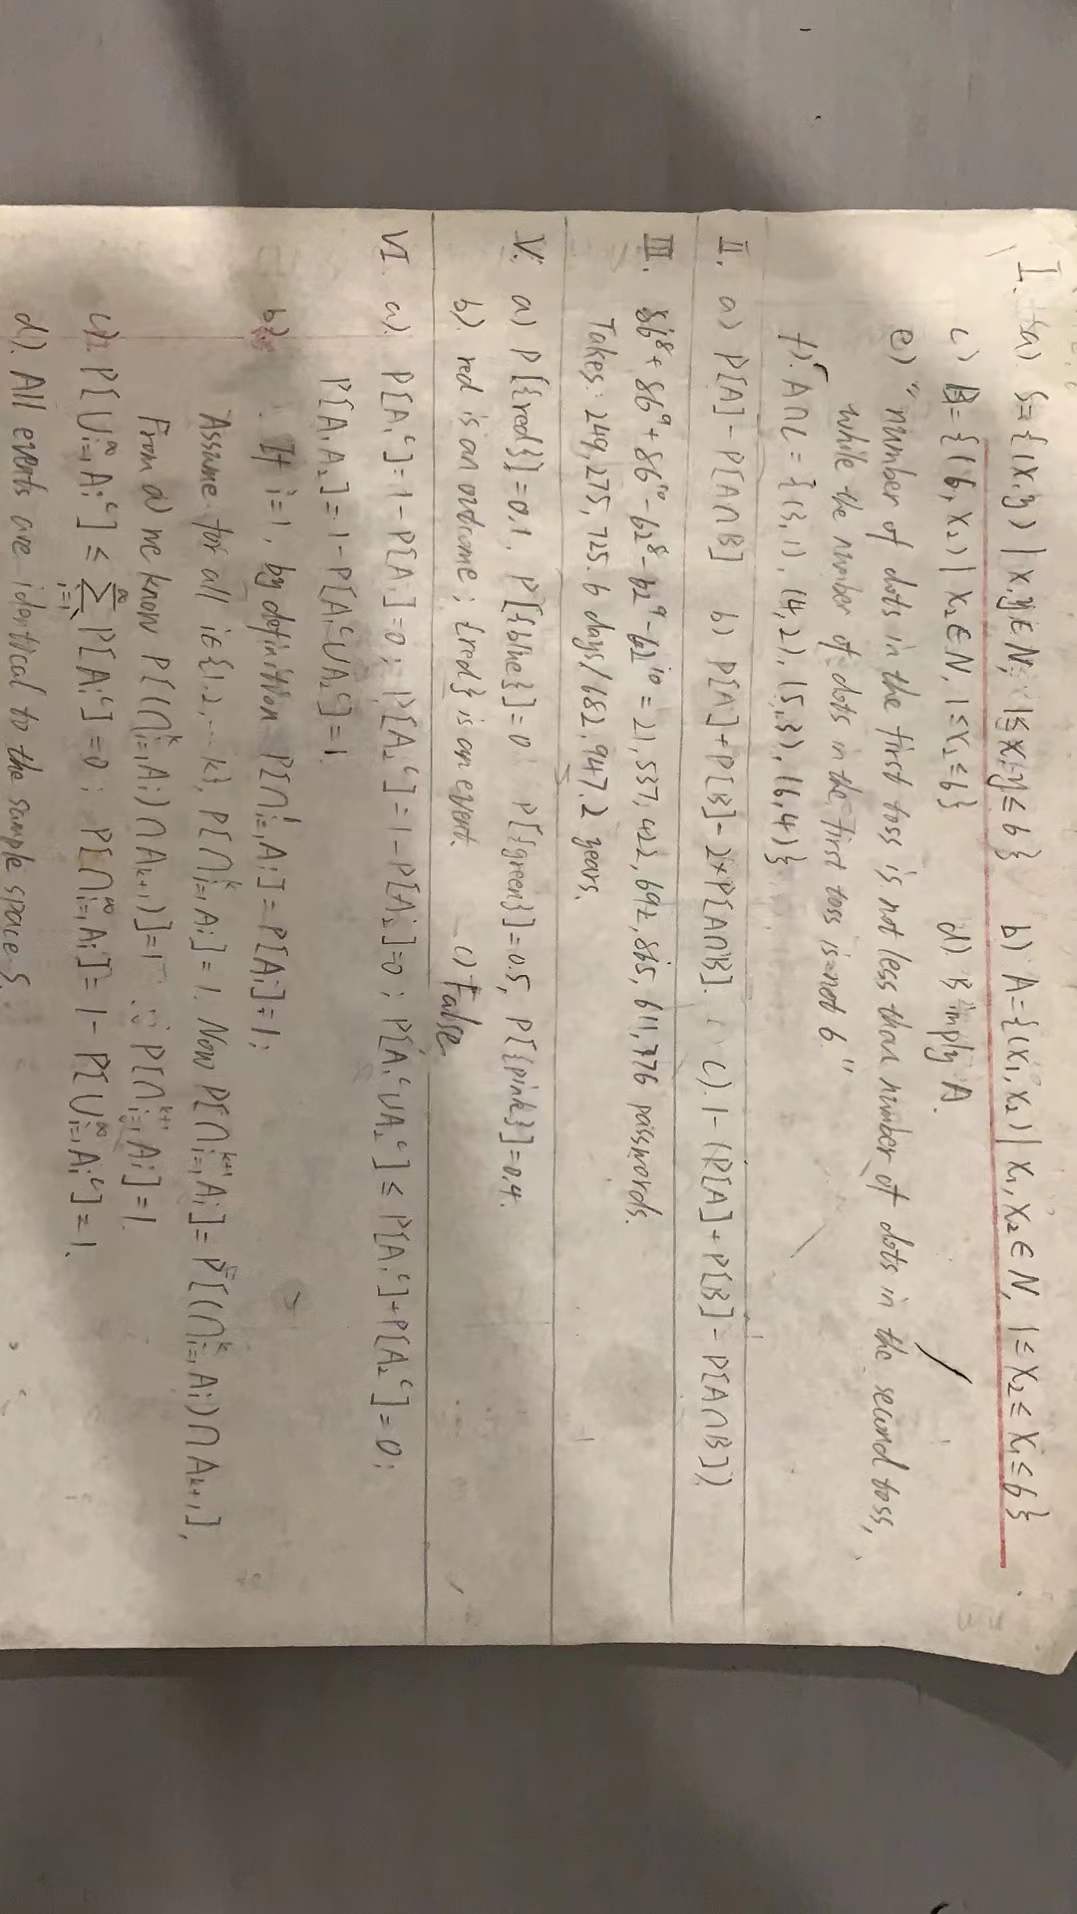 I. a) S={(x,y) | x,y∈N, 1≤x,y≤6} b) A={(x₁,x₂) | x₁,x₂∈N, 1≤x₂≤x₁≤6}
c) B={(6,x₂) | x₂∈N, 1≤x₂≤6} d). B imply A.
e) "number of dots in the first toss is not less than number of dots in the second toss,
while the number of dots in the first toss is not 6"
f). A∩C = {(3,1), (4,2), (5,3), (6,4)}
II. a) P[A]-P[A∩B] b) P[A]+P[B]-2×P[A∩B]. c). 1-(P[A]+P[B]-P[A∩B])
III. 86⁸+86⁹+86¹⁰-62⁸-62⁹-62¹⁰ = 21,537,422,692,865,611,776 passwords.
Takes: 249,275,725.6 days/682,947.2 years.
V. a) P[{red}]=0.1, P[{blue}]=0 P[{green}]=0.5, P[{pink}]=0.4.
b). red is an outcome; {red} is an event. c) False
VI a). P[A₁ᶜ]=1-P[A₁]=0; P[A₂ᶜ]=1-P[A₂]=0; P[A₁ᶜ∪A₂ᶜ] ≤ P[A₁ᶜ]+P[A₂ᶜ]=0;
P[A₁A₂]=1-P[A₁ᶜ∪A₂ᶜ]=1.
b). If i=1, by definition P[∩ᵢ₌₁¹Aᵢ]=P[Aᵢ]=1;
Assume for all i∈{1,2,...k}, P[∩ᵢ₌₁ᵏAᵢ]=1. Now P[∩ᵢ₌₁ᵏ⁺¹Aᵢ]=P[(∩ᵢ₌₁ᵏAᵢ)∩Aₖ₊₁],
From a) we know P[(∩ᵢ₌₁ᵏAᵢ)∩Aₖ₊₁)]=1 ∴ P[∩ᵢ₌₁ᵏ⁺¹Aᵢ]=1.
c). P[∪ᵢ₌₁^∞Aᵢᶜ] ≤ ∑ᵢ₌₁^∞ P[Aᵢᶜ]=0; P[∩ᵢ₌₁^∞Aᵢ]=1-P[∪ᵢ₌₁^∞Aᵢᶜ]=1.
d). All events are identical to the sample space S.